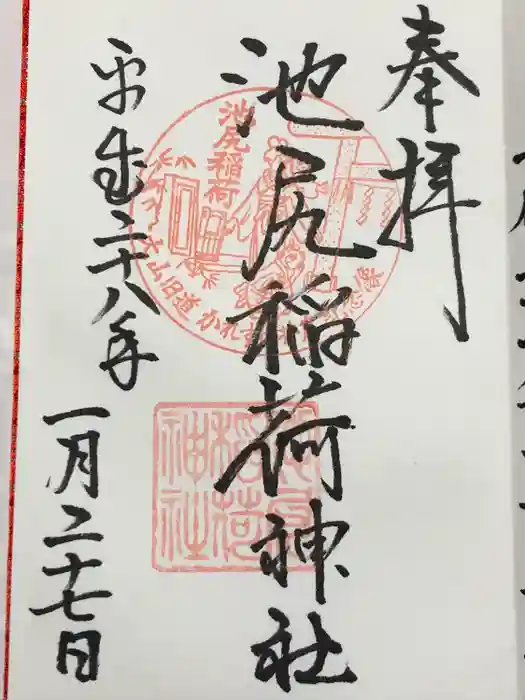 奉拝
池尻稲荷神社
平成二十八年
一月二十七日
池尻稲荷
大山旧道
神社